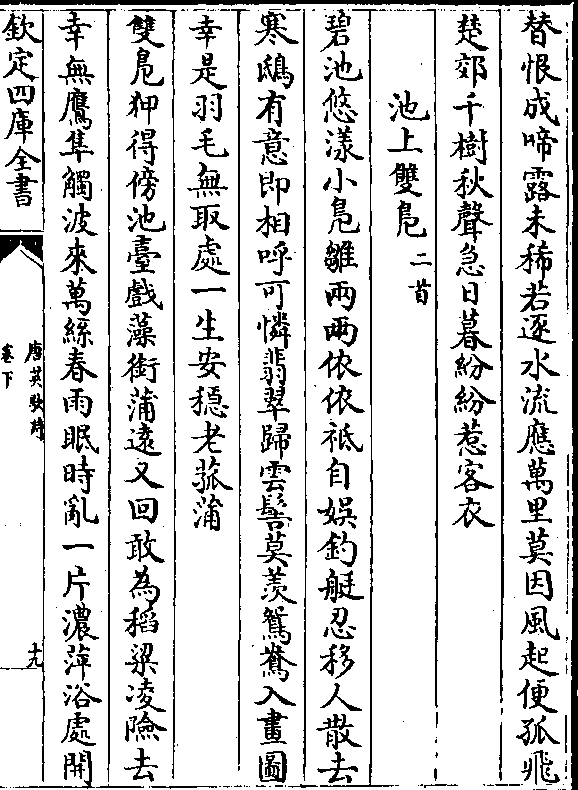 替恨成啼露未稀若逐水流應萬里莫因風起便孤飛
楚郊千樹秋聲急日暮紛紛惹客衣
池上雙鳬二首
碧池悠漾小鳬雛兩兩依依祗自娛釣艇忍移人散去
寒鴟有意即相呼可憐翡翠歸雲髻莫羨鴛鴦入畫圖
幸是羽毛無取處一生安穏老菰蒲
雙鳬狎得傍池臺戲藻銜蒲遠又回敢為稻粱凌險去
幸無鷹隼觸波來萬絲春雨眠時亂一片濃萍浴處開
欽定四庫全書
唐英歌詩
卷下
十九